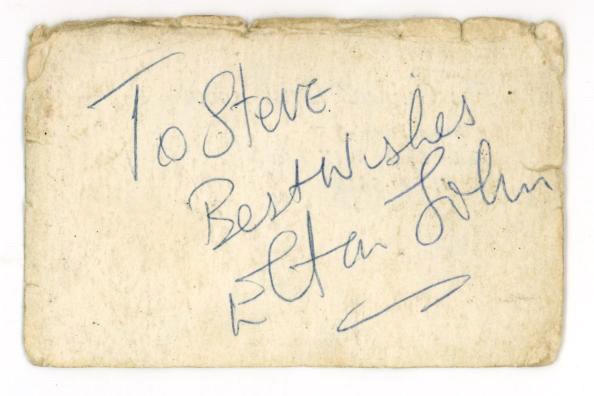 To Steve
Best Wishes
Elton John